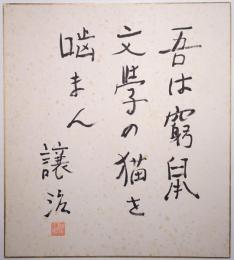 吾は窮鼠
文學の猫を
噛まん
譲治